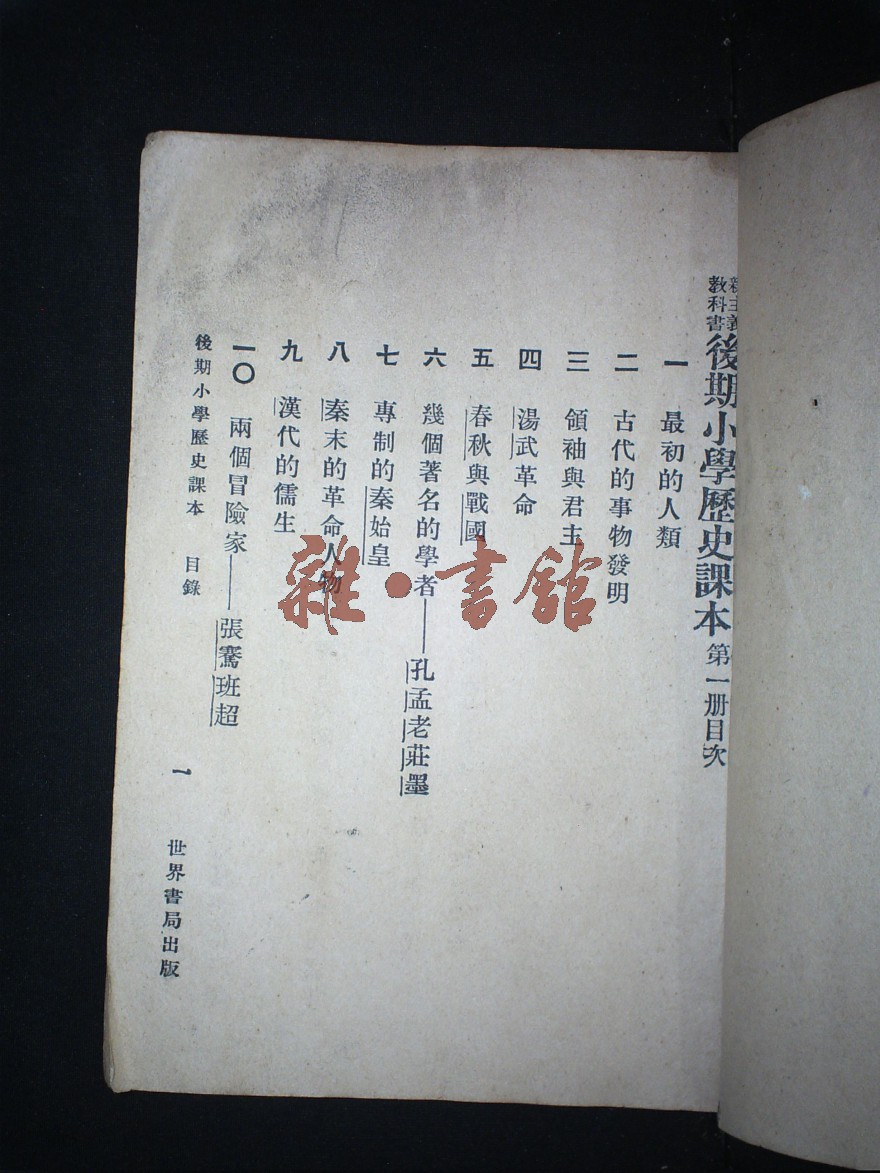 新主義
教科書
後期小學歷史課本 第一册目次
一 最初的人類
二 古代的事物發明
三 領袖與君主
四 湯武革命
五 春秋與戰國
六 幾個著名的學者——孔孟老莊墨
七 專制的秦始皇
八 秦末的革命人物
九 漢代的儒生
一〇 兩個冒險家——張騫班超
後期小學歷史課本 目錄 一 世界書局出版
雜·書館